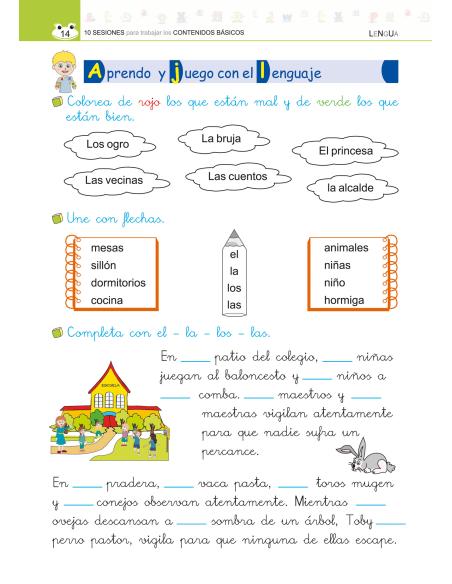 14
10 SESIONES para trabajar los CONTENIDOS BÁSICOS
LENGUA
Aprendo y juego con el lenguaje
Colorea de rojo los que están mal y de verde los que
están bien.
Los ogro
La bruja
El princesa
Las vecinas
Las cuentos
la alcalde
Une con flechas.
mesas
sillón
dormitorios
cocina
el
la
los
las
animales
niñas
niño
hormiga
Completa con el - la - los - las.
ESCUELA
En ____ patio del colegio, ____ niñas
juegan al baloncesto y ____ niños a
____ comba. ____ maestros y ____
maestras vigilan atentamente
para que nadie sufra un
percance.
En ____ pradera, ____ vaca pasta, ____ toros mugen
y ____ conejos observan atentamente. Mientras ____
ovejas descansan a ____ sombra de un árbol, Toby ____
perro pastor, vigila para que ninguna de ellas escape.